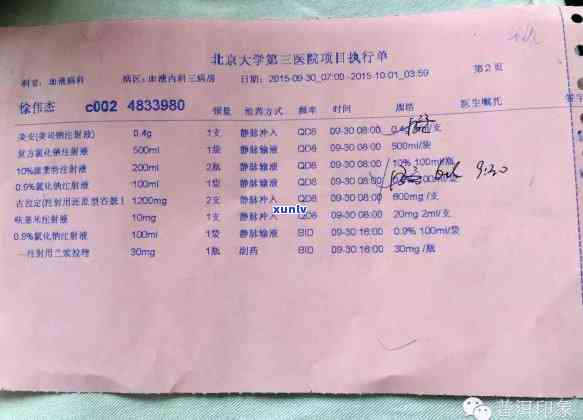 北京大学第三医院项目执行单
科室:血液病科 病区:血液内科三病房 日期:2015-09-30_07:00-2015-10-01_03:59 第2页
徐伟杰 c002 4833980 领量 给药方式 频率 时间 规格 医生嘱托
美安(美司钠注射液) 0.4g 1支 静脉冲入 QD8 09-30 08:00 0.4g /支
复方氯化钠注射液 500ml 1袋 静脉输液 QD8 09-30 08:00 500ml/袋
10%脂素物注射液 200ml 2瓶 静脉输液 QD8 09-30 08:00 10% 100ml/瓶
0.9%氯化钠注射液 100ml 1袋 静脉输液 QD8 09-30 08:00 9:30
古拉定(注射用还原型谷胱 1200mg 2支 静脉冲入 QD8 09-30 08:00 600mg /支
呋塞米注射液 10mg 1支 静脉冲入 QD8 09-30 08:00 20mg 2ml/支
0.9%氯化钠注射液 100ml 1袋 静脉输液 BID 09-30 16:00 0.9% 100ml/袋
—注射用兰索拉唑 30mg 1瓶 BID 09-30 16:00 30mg /瓶
xunlv
普洱印象